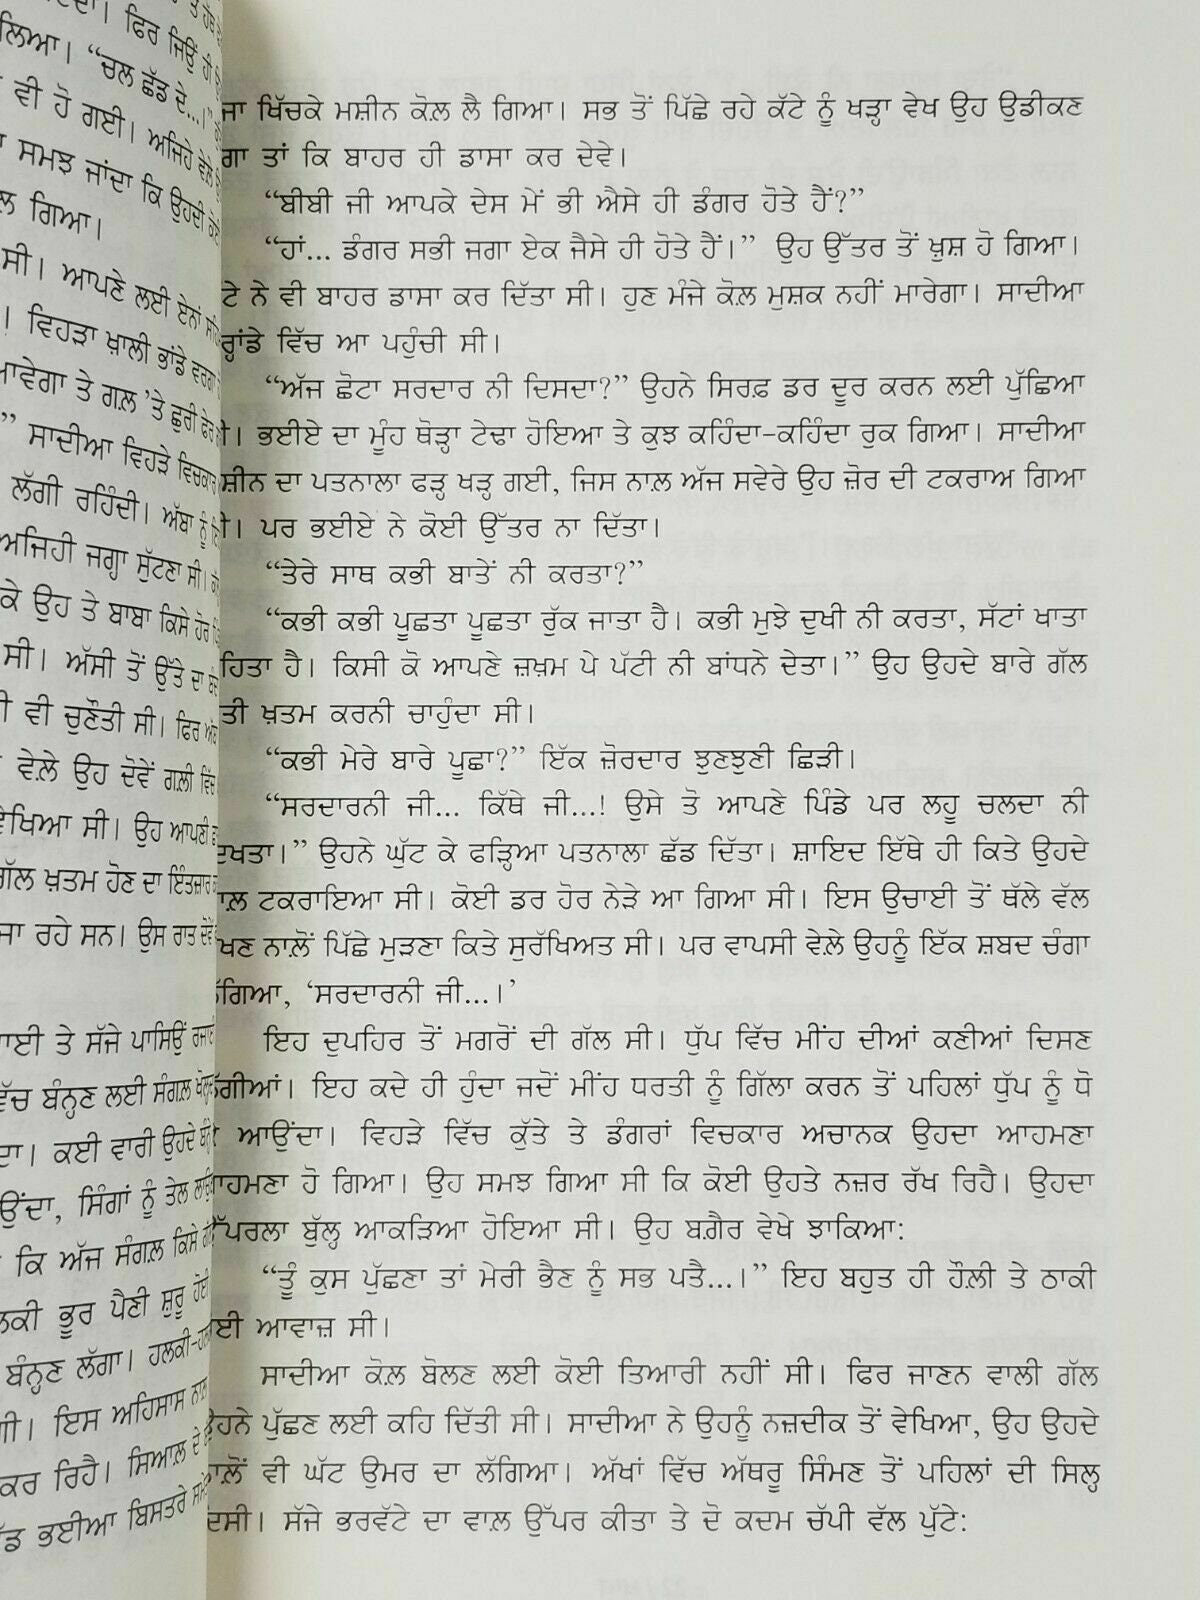 ਫਿਰ ਜਿਉਂ ਹੀ
ਲਿਆ। “ਚਲ ਛੱਡ ਦੇ...।”
ਵੀ ਹੋ ਗਈ। ਅਜਿਹੇ ਵੇਲੇ
ਸਮਝ ਜਾਂਦਾ ਕਿ ਉਹਦੀ
ਗਿਆ।
ਸੀ। ਆਪਣੇ ਲਈ ਏਨਾਂ
। ਵਿਹੜਾ ਖ਼ਾਲੀ ਭਾਂਡੇ ਵਰਗਾ
ਆਵੇਗਾ ਤੇ ਗਲ਼ ’ਤੇ ਛੁਰੀ ਫੇਰ
” ਸਾਦੀਆ ਵਿਹੜੇ ਵਿਚਕਾਰ
ਲੱਗੀ ਰਹਿੰਦੀ। ਅੱਬਾ ਨੂੰ
ਅਜਿਹੀ ਜਗ੍ਹਾ ਸੁੱਟਣਾ ਸੀ।
ਕੇ ਉਹ ਤੇ ਬਾਬਾ ਕਿਸੇ ਹੋਰ
ਸੀ। ਅੱਸੀ ਤੋਂ ਉੱਤੇ ਦਾ
ਵੀ ਚੁਣੌਤੀ ਸੀ। ਫਿਰ
ਵੇਲ਼ੇ ਉਹ ਦੋਵੇਂ ਗਲ਼ੀ ਵਿੱਚ
ਵੇਖਿਆ ਸੀ। ਉਹ ਆਪਣੀ
ਗੱਲ ਖ਼ਤਮ ਹੋਣ ਦਾ ਇੰਤਜ਼ਾਰ
ਜਾ ਰਹੇ ਸਨ। ਉਸ ਰਾਤ ਦੋਵੇਂ
ਤੇ ਸੱਜੇ ਪਾਸਿਉਂ
ਵਿੱਚ ਬੰਨ੍ਹਣ ਲਈ ਸੰਗਲ਼
ਕਈ ਵਾਰੀ ਉਹਦੇ
ਸਿੰਗਾਂ ਨੂੰ ਤੇਲ
ਕਿ ਅੱਜ ਸੰਗਲ਼ ਕਿਸੇ
ਭੂਰ ਪੈਣੀ ਸ਼ੁਰੂ ਹੋਈ
ਬੰਨ੍ਹਣ ਲੱਗਾ।
ਇਸ ਅਹਿਸਾਸ ਨਾਲ਼
ਕਰ ਰਿਹੈ। ਸਿਆਲ਼ ਦੇ
ਭਈਆ ਬਿਸਤਰੇ
ਜਾ ਖਿੱਚਕੇ ਮਸ਼ੀਨ ਕੋਲ਼ ਲੈ ਗਿਆ। ਸਭ ਤੋਂ ਪਿੱਛੇ ਰਹੇ ਕੱਟੇ ਨੂੰ ਖੜ੍ਹਾ ਵੇਖ ਉਹ ਉਡੀਕਣ
ਗਾ ਤਾਂ ਕਿ ਬਾਹਰ ਹੀ ਡਾਸਾ ਕਰ ਦੇਵੇ।
“ਬੀਬੀ ਜੀ ਆਪਕੇ ਦੇਸ ਮੇਂ ਭੀ ਐਸੇ ਹੀ ਡੰਗਰ ਹੋਤੇ ਹੈਂ?”
“ਹਾਂ... ਡੰਗਰ ਸਭੀ ਜਗਾ ਏਕ ਜੈਸੇ ਹੀ ਹੋਤੇ ਹੈਂ।” ਉਹ ਉੱਤਰ ਤੋਂ ਖ਼ੁਸ਼ ਹੋ ਗਿਆ।
ਟੇ ਨੇ ਵੀ ਬਾਹਰ ਡਾਸਾ ਕਰ ਦਿੱਤਾ ਸੀ। ਹੁਣ ਮੰਜੇ ਕੋਲ਼ ਮੁਸ਼ਕ ਨਹੀਂ ਮਾਰੇਗਾ। ਸਾਦੀਆ
ਰ੍ਹਾਂਡੇ ਵਿੱਚ ਆ ਪਹੁੰਚੀ ਸੀ।
“ਅੱਜ ਛੋਟਾ ਸਰਦਾਰ ਨੀ ਦਿਸਦਾ?” ਉਹਨੇ ਸਿਰਫ਼ ਡਰ ਦੂਰ ਕਰਨ ਲਈ ਪੁੱਛਿਆ
ੀ। ਭਈਏ ਦਾ ਮੂੰਹ ਥੋੜ੍ਹਾ ਟੇਢਾ ਹੋਇਆ ਤੇ ਕੁਝ ਕਹਿੰਦਾ-ਕਹਿੰਦਾ ਰੁਕ ਗਿਆ। ਸਾਦੀਆ
ਸ਼ੀਨ ਦਾ ਪਤਨਾਲਾ ਫੜ੍ਹ ਖੜ੍ਹ ਗਈ, ਜਿਸ ਨਾਲ਼ ਅੱਜ ਸਵੇਰੇ ਉਹ ਜ਼ੋਰ ਦੀ ਟਕਰਾਅ ਗਿਆ
ੀ। ਪਰ ਭਈਏ ਨੇ ਕੋਈ ਉੱਤਰ ਨਾ ਦਿੱਤਾ।
“ਤੇਰੇ ਸਾਥ ਕਭੀ ਬਾਤੇਂ ਨੀ ਕਰਤਾ?”
“ਕਭੀ ਕਭੀ ਪੂਛਤਾ ਪੂਛਤਾ ਰੁੱਕ ਜਾਤਾ ਹੈ। ਕਭੀ ਮੁਝੇ ਦੁਖੀ ਨੀ ਕਰਤਾ, ਸੱਟਾਂ ਖਾਤਾ
ਹਿਤਾ ਹੈ। ਕਿਸੀ ਕੋ ਆਪਣੇ ਜ਼ਖ਼ਮ ਪੇ ਪੱਟੀ ਨੀ ਬਾਂਧਨੇ ਦੇਤਾ।” ਉਹ ਉਹਦੇ ਬਾਰੇ ਗੱਲ
ਤੀ ਖ਼ਤਮ ਕਰਨੀ ਚਾਹੁੰਦਾ ਸੀ।
“ਕਭੀ ਮੇਰੇ ਬਾਰੇ ਪੂਛਾ?” ਇੱਕ ਜ਼ੋਰਦਾਰ ਝੁਣਝੁਣੀ ਛਿੜੀ।
“ਸਰਦਾਰਨੀ ਜੀ... ਕਿੱਥੇ ਜੀ...! ਉਸੇ ਤੋ ਆਪਣੇ ਪਿੰਡੇ ਪਰ ਲਹੂ ਚਲਦਾ ਨੀ
ਦੁਖਤਾ।” ਉਹਨੇ ਘੁੱਟ ਕੇ ਫੜ੍ਹਿਆ ਪਤਨਾਲਾ ਛੱਡ ਦਿੱਤਾ। ਸ਼ਾਇਦ ਇੱਥੇ ਹੀ ਕਿਤੇ ਉਹਦੇ
ਾਲ਼ ਟਕਰਾਇਆ ਸੀ। ਕੋਈ ਡਰ ਹੋਰ ਨੇੜੇ ਆ ਗਿਆ ਸੀ। ਇਸ ਉਚਾਈ ਤੋਂ ਥੱਲੇ ਵੱਲ
ਖਣ ਨਾਲੋਂ ਪਿੱਛੇ ਮੁੜਣਾ ਕਿਤੇ ਸੁਰੱਖਿਅਤ ਸੀ। ਪਰ ਵਾਪਸੀ ਵੇਲ਼ੇ ਉਹਨੂੰ ਇੱਕ ਸ਼ਬਦ ਚੰਗਾ
ੱਗਿਆ, ‘ਸਰਦਾਰਨੀ ਜੀ...।’
ਇਹ ਦੁਪਹਿਰ ਤੋਂ ਮਗਰੋਂ ਦੀ ਗੱਲ ਸੀ। ਧੁੱਪ ਵਿੱਚ ਮੀਂਹ ਦੀਆਂ ਕਣੀਆਂ ਦਿਸਣ
ੱਗੀਆਂ। ਇਹ ਕਦੇ ਹੀ ਹੁੰਦਾ ਜਦੋਂ ਮੀਂਹ ਧਰਤੀ ਨੂੰ ਗਿੱਲਾ ਕਰਨ ਤੋਂ ਪਹਿਲਾਂ ਧੁੱਪ ਨੂੰ ਧੋ
ਆਉਂਦਾ। ਵਿਹੜੇ ਵਿੱਚ ਕੁੱਤੇ ਤੇ ਡੰਗਰਾਂ ਵਿਚਕਾਰ ਅਚਾਨਕ ਉਹਦਾ ਆਹਮਣਾ
ਾਹਮਣਾ ਹੋ ਗਿਆ। ਉਹ ਸਮਝ ਗਿਆ ਸੀ ਕਿ ਕੋਈ ਉਹਤੇ ਨਜ਼ਰ ਰੱਖ ਰਿਹੈ। ਉਹਦਾ
ੱਪਰਲਾ ਬੁੱਲ੍ਹ ਆਕੜਿਆ ਹੋਇਆ ਸੀ। ਉਹ ਬਗ਼ੈਰ ਵੇਖੇ ਝਾਕਿਆ:
“ਤੂੰ ਕੁਸ ਪੁੱਛਣਾ ਤਾਂ ਮੇਰੀ ਭੈਣ ਨੂੰ ਸਭ ਪਤੈ...।” ਇਹ ਬਹੁਤ ਹੀ ਹੌਲ਼ੀ ਤੇ ਠਾਕੀ
ਈ ਆਵਾਜ਼ ਸੀ।
ਸਾਦੀਆ ਕੋਲ਼ ਬੋਲਣ ਲਈ ਕੋਈ ਤਿਆਰੀ ਨਹੀਂ ਸੀ। ਫਿਰ ਜਾਣਨ ਵਾਲੀ ਗੱਲ
ਹਨੇ ਪੁੱਛਣ ਲਈ ਕਹਿ ਦਿੱਤੀ ਸੀ। ਸਾਦੀਆ ਨੇ ਉਹਨੂੰ ਨਜ਼ਦੀਕ ਤੋਂ ਵੇਖਿਆ, ਉਹ ਉਹਦੇ
ਾਲੋਂ ਵੀ ਘੱਟ ਉਮਰ ਦਾ ਲੱਗਿਆ। ਅੱਖਾਂ ਵਿੱਚ ਅੱਥਰੂ ਸਿੰਮਣ ਤੋਂ ਪਹਿਲਾਂ ਦੀ ਸਿਲ੍ਹ
ਦਸੀ। ਸੱਜੇ ਭਰਵੱਟੇ ਦਾ ਵਾਲ਼ ਉੱਪਰ ਕੀਤਾ ਤੇ ਦੋ ਕਦਮ ਚੱਪੀ ਵੱਲ ਪੁੱਟੇ: